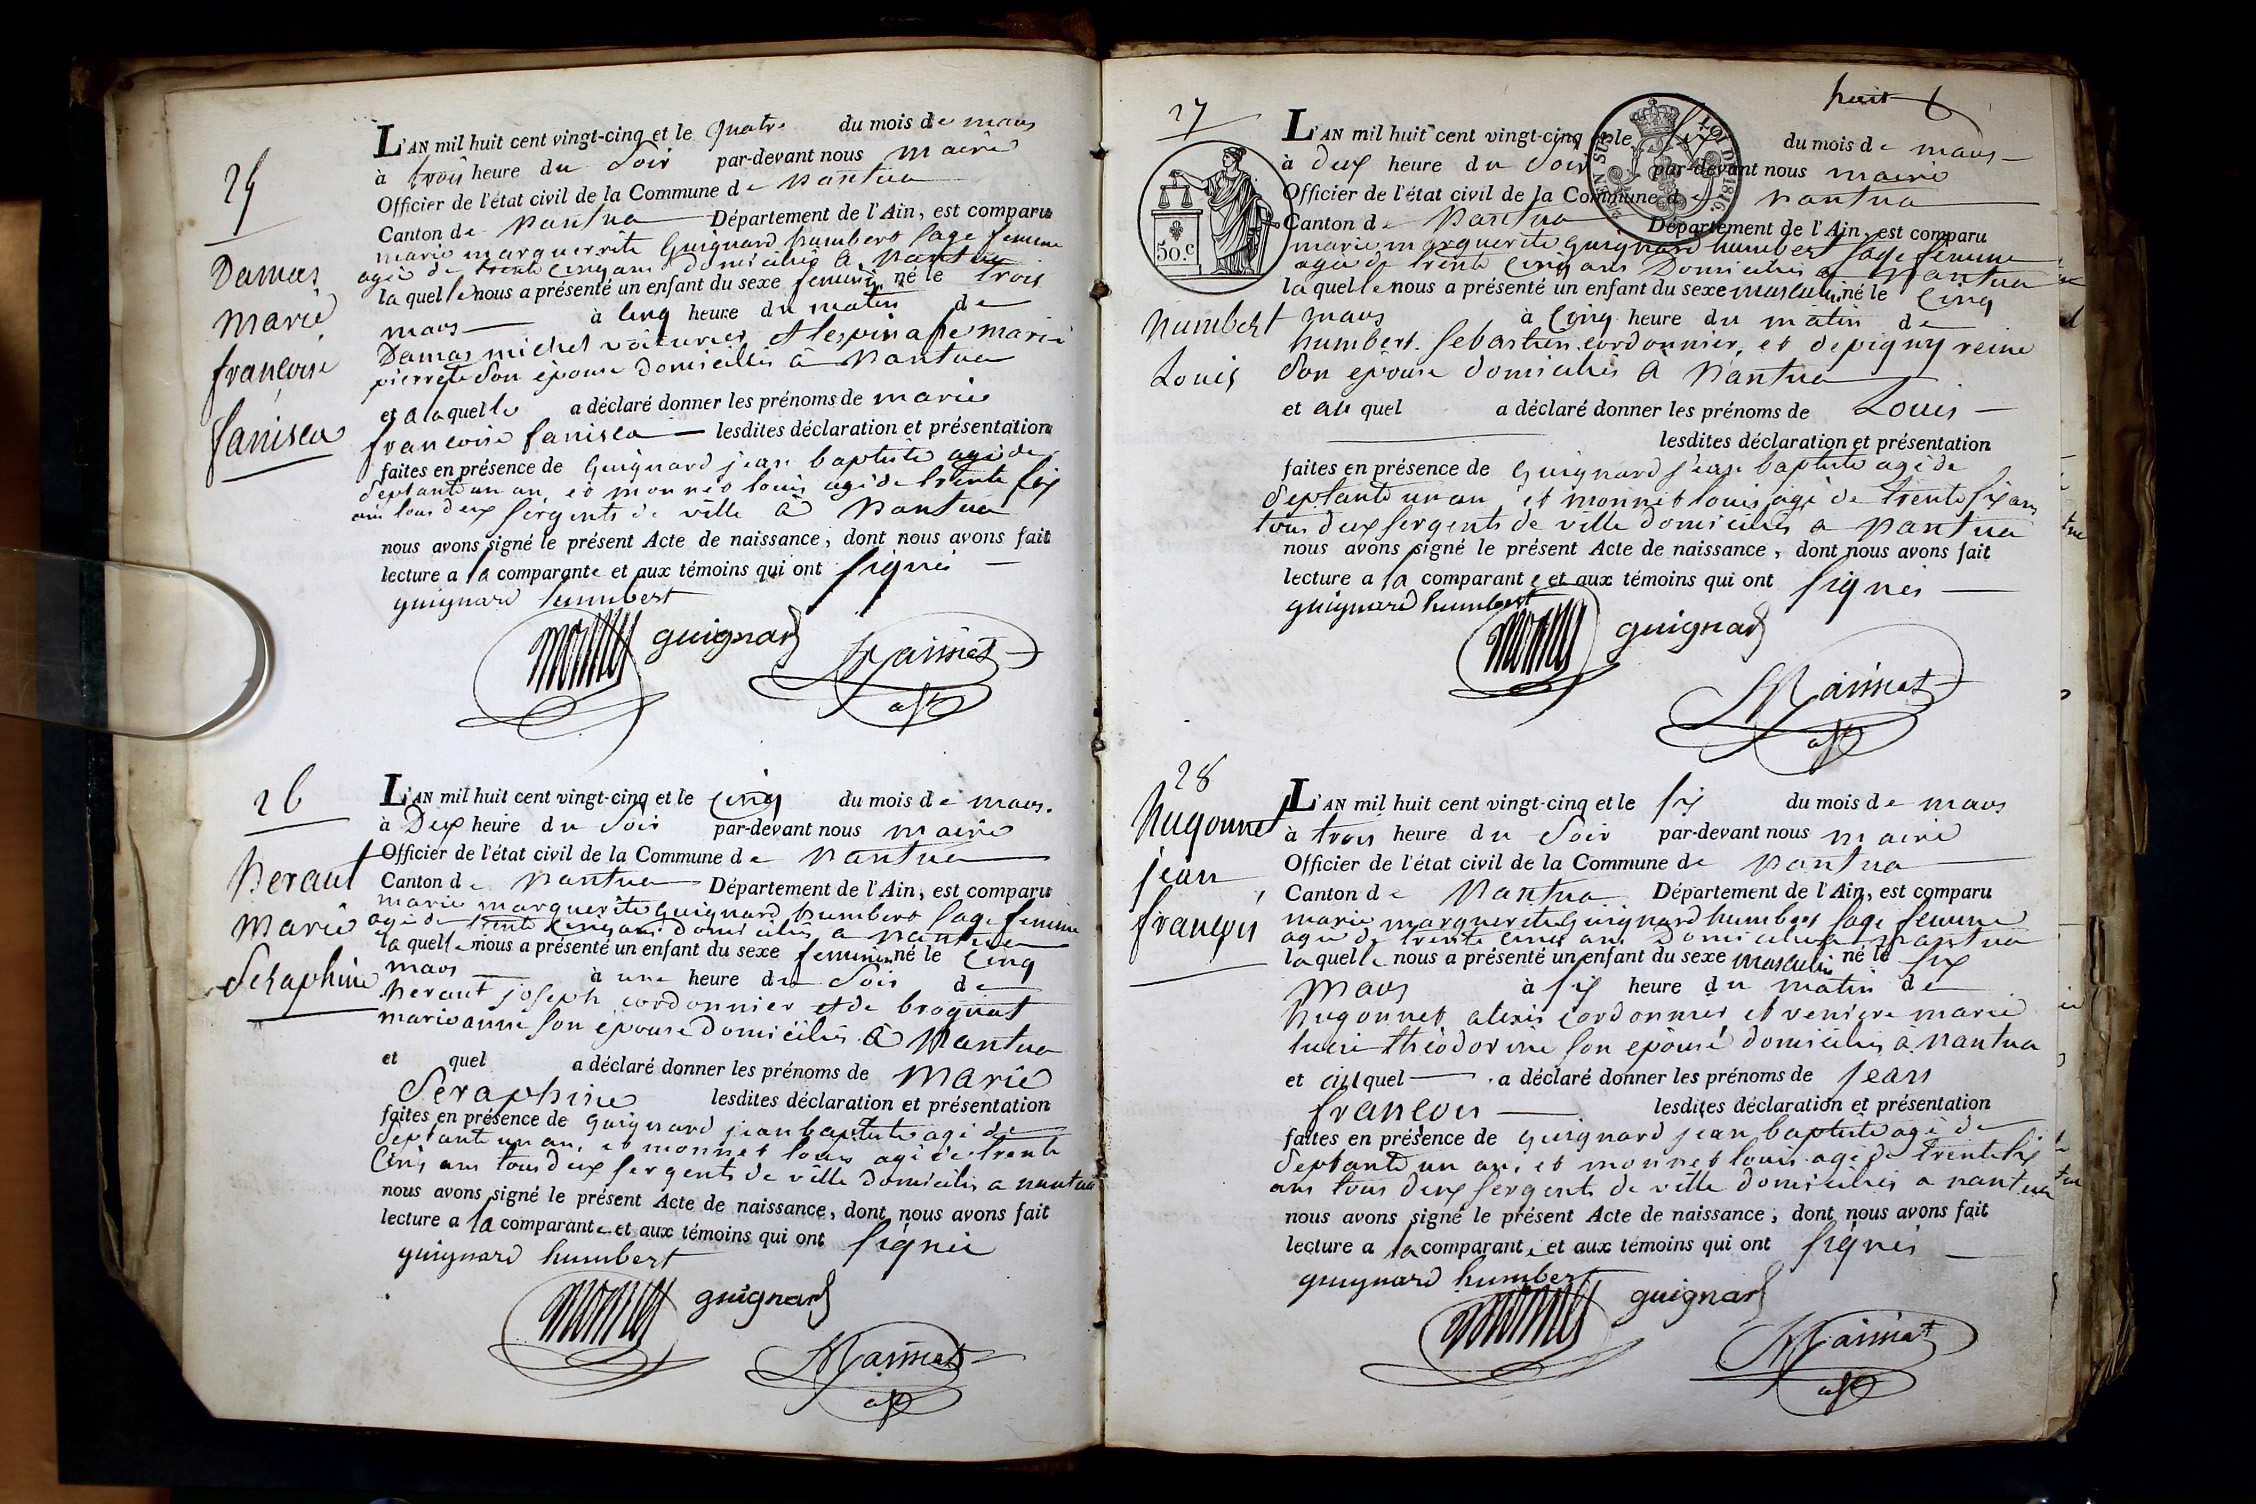 25
Damas
Marie
françoise
fanisca
L'AN mil huit cent vingt-cinq et le quatre du mois de mars
à trois heure du Soir par-devant nous maire
Officier de l'état civil de la Commune de Nantua
Canton de Nantua Département de l'Ain, est comparu
marie marguerite Guignard humbert Sage femme
agée de trente cinq ans domiciliée à Nantua
la quelle nous a présenté un enfant du sexe feminin né le trois
mars à cinq heure du matin de
Damas michel voiturier et lespinasse marie
pierrette Son épouse domiciliés à Nantua
et a laquelle a déclaré donner les prénoms de marie
francoise fanisca lesdites déclaration et présentation
faites en présence de Guignard jean baptiste agé de
Septante un an, et monnet louis agé de trente six
ans tous deux Sergents de ville à Nantua
nous avons signé le présent Acte de naissance, dont nous avons fait
lecture a la comparante et aux témoins qui ont Signés
guignard humbert
monnet guignard
26
Heraut
Marie
Seraphine
L'AN mil huit cent vingt-cinq et le cinq du mois de mars.
à Deux heure du Soir par-devant nous maire
Officier de l'état civil de la Commune de Nantua
Canton de Nantua Département de l'Ain, est comparu
marie marguerite Guignard humbert Sage femme
agée de trente cinq ans domiciliée a nantua
la quelle nous a présenté un enfant du sexe feminin né le Cinq
mars à une heure du Soir de
Heraut joseph cordonnier et de broquet
marie anne Son épouse domiciliés à Nantua
et quel a déclaré donner les prénoms de Marie
Seraphine lesdites déclaration et présentation
faites en présence de Guignard jean baptiste agé de
Septante un an, et monnet louis agé de trente
Cinq ans tous deux Sergents de ville domiciliés a nantua
nous avons signé le présent Acte de naissance, dont nous avons fait
lecture a la comparante et aux témoins qui ont Signés
guignard humbert
monnet guignard
huit
27
50.c
LOI DE 1816.
Humbert
Louis
L'AN mil huit cent vingt-cinq et le Six du mois de mars
à deux heure du Soir par-devant nous maire
Officier de l'état civil de la Commune de Nantua
Canton de Nantua Département de l'Ain, est comparu
marie marguerite guignard humbert Sage femme
agée de trente cinq ans Domiciliée a Nantua
la quelle nous a présenté un enfant du sexe masculin né le Cinq
mars à Cinq heure du matin de
humbert Sebastien cordonnier, et depigny reine
Son épouse domiciliés à Nantua
et au quel a déclaré donner les prénoms de Louis
lesdites déclaration et présentation
faites en présence de Guignard jean baptiste agé de
Septante un an et monnet louis agé de trente six ans
tous deux Sergents de ville domiciliés a Nantua
nous avons signé le présent Acte de naissance, dont nous avons fait
lecture a la comparante et aux témoins qui ont Signés
guignard humbert
monnet guignard
28
Hugonnet
jean
françois
L'AN mil huit cent vingt-cinq et le six du mois de mars
à trois heure du Soir par-devant nous maire
Officier de l'état civil de la Commune de Nantua
Canton de Nantua Département de l'Ain, est comparu
marie marguerite Guignard humbert Sage femme
agée de trente cinq ans Domiciliée a Nantua
la quelle nous a présenté un enfant du sexe masculin né le Six
Mars à six heure du matin de
Hugonnet alexis cordonnier et marie
théodorine Son épouse domiciliés à Nantua
et au quel a déclaré donner les prénoms de jean
françois lesdites déclaration et présentation
faites en présence de Guignard jean baptiste agé de
Septante un an, et monnet louis agé de trente six
ans tous deux Sergents de ville domiciliés a nantua
nous avons signé le présent Acte de naissance, dont nous avons fait
lecture a la comparante et aux témoins qui ont Signés
guignard humbert
monnet guignard